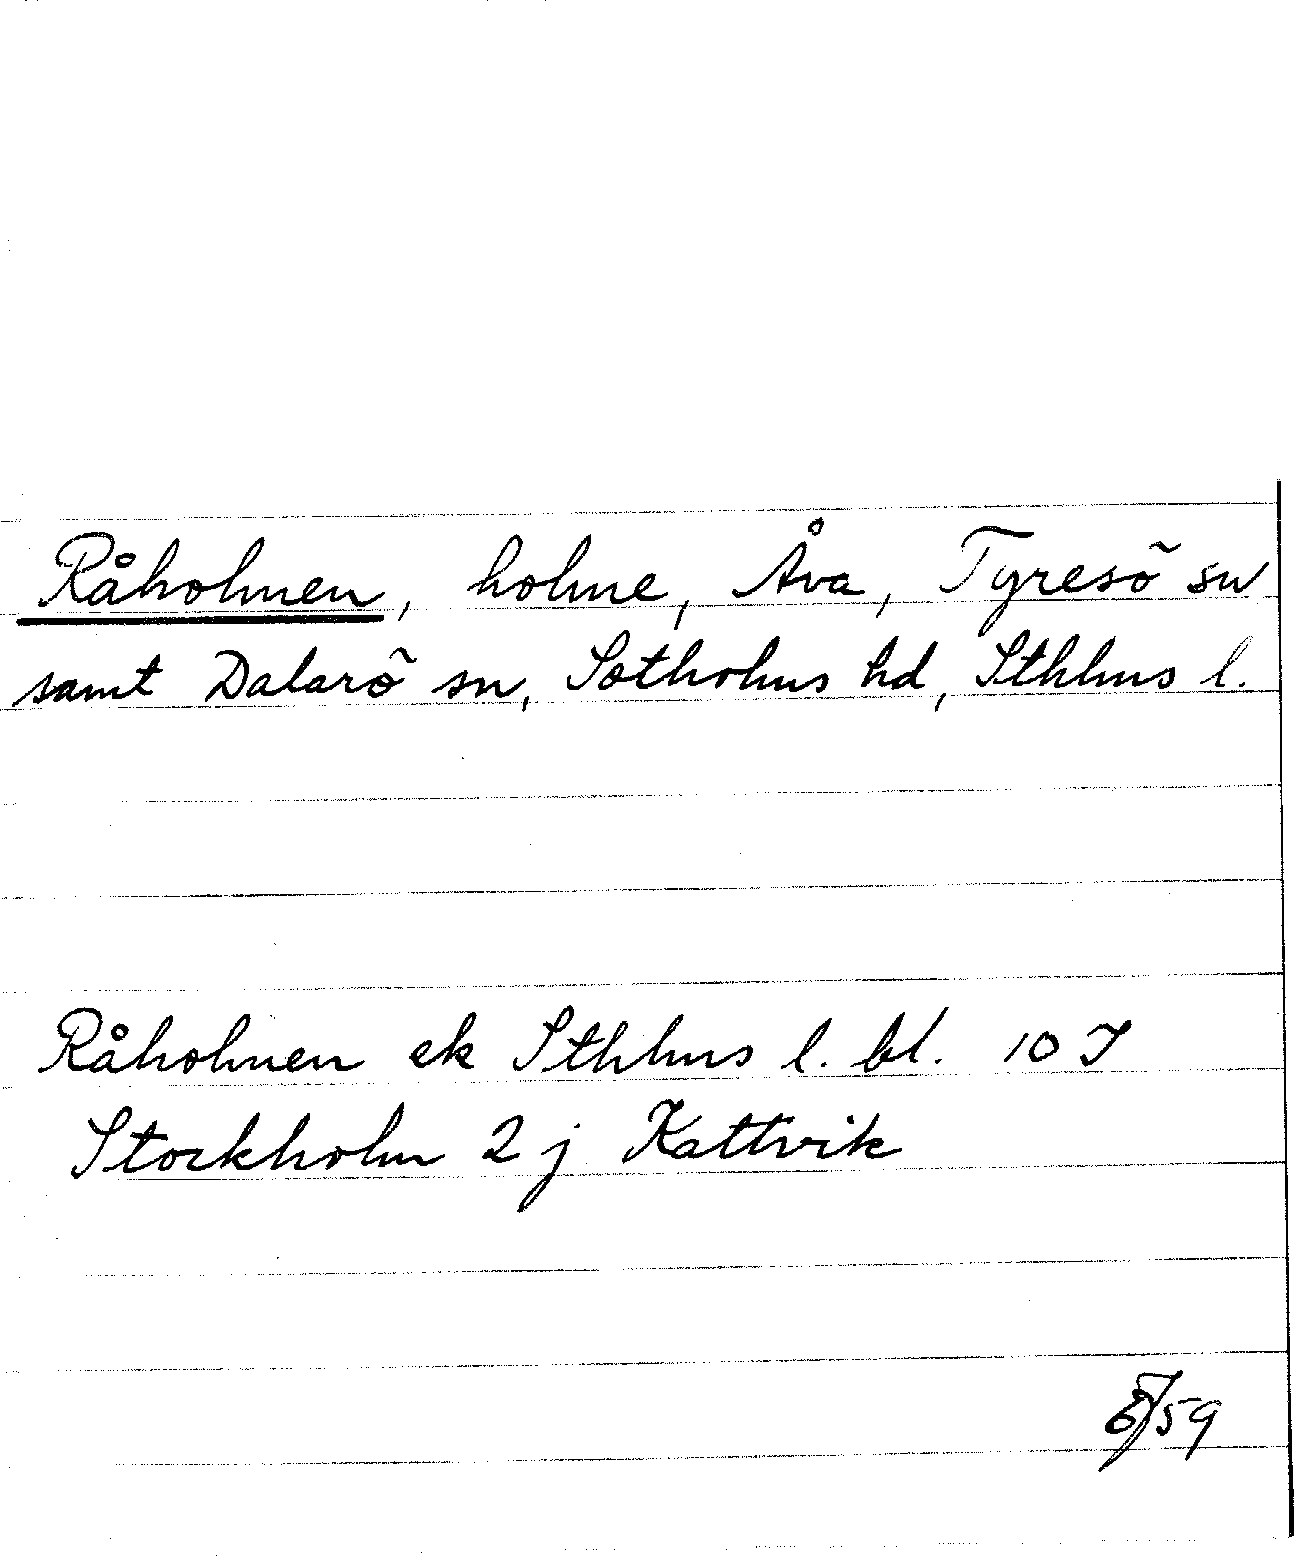 Råholmen, holme, Åva, Tyresö sn
samt Dalarö sn, Sotholms hd, Sthlms l.
Råholmen ek Sthlms l. bl. 10 I
Stockholm 2 j Kattvik
/59